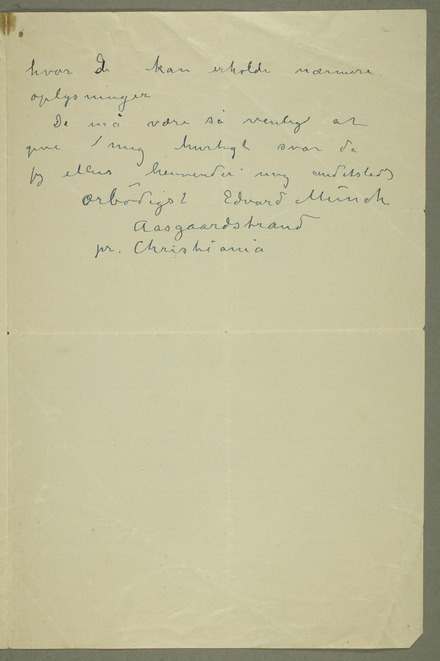 hvor De kan erholde nærmere
oplysninger
De må være så venlig at
give mig hurtigt svar da
jg ellers henvender mig andetsteds
ærbødigst Edvard Münch
Aasgaardstrand
pr. Christiania